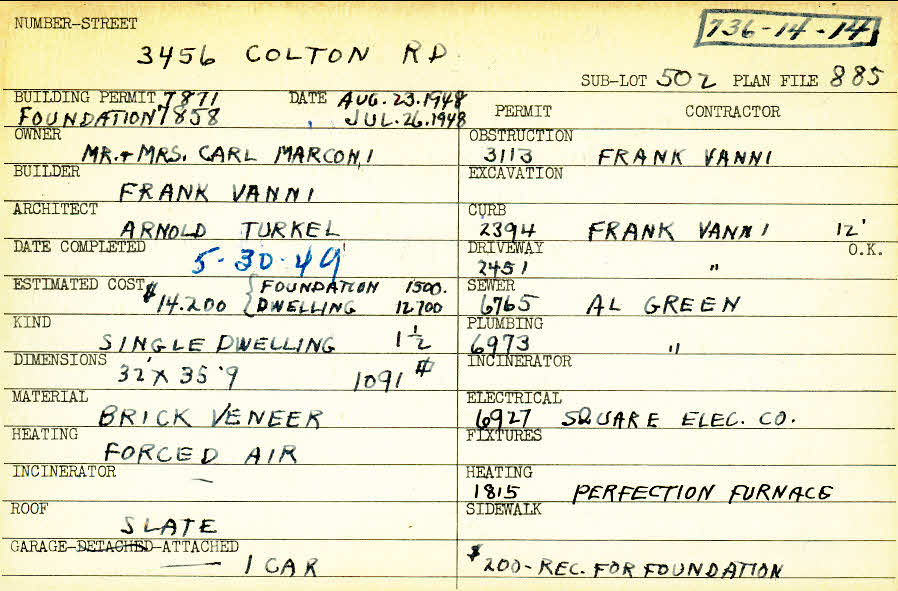 NUMBER-STREET
736-14-14
3456 COLTON RD
SUB-LOT 502 PLAN FILE 885
BUILDING PERMIT 7871 DATE AUG. 23. 1948
FOUNDATION 7858 JUL. 26. 1948
OWNER
MR. + MRS. CARL MARCONI
BUILDER
FRANK VANNI
ARCHITECT
ARNOLD TURKEL
DATE COMPLETED
5-30-49
ESTIMATED COST $14.200 { FOUNDATION 1500.
DWELLING 12700
KIND
SINGLE DWELLING 1½
DIMENSIONS
32' X 35'9 1091 #
MATERIAL
BRICK VENEER
HEATING
FORCED AIR
INCINERATOR
—
ROOF
SLATE
GARAGE-DETACHED-ATTACHED
1 CAR
PERMIT CONTRACTOR
OBSTRUCTION
3113 FRANK VANNI
EXCAVATION
CURB
2394 FRANK VANNI 12'
DRIVEWAY O.K.
2451 "
SEWER
6765 AL GREEN
PLUMBING
6973 "
INCINERATOR
ELECTRICAL
6927 SQUARE ELEC. CO.
FIXTURES
HEATING
1815 PERFECTION FURNACE
SIDEWALK
$200- REC. FOR FOUNDATION